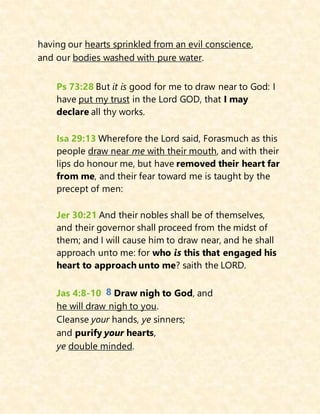 having our hearts sprinkled from an evil conscience,
and our bodies washed with pure water.
Ps 73:28 But it is good for me to draw near to God: I
have put my trust in the Lord GOD, that I may
declare all thy works.
Isa 29:13 Wherefore the Lord said, Forasmuch as this
people draw near me with their mouth, and with their
lips do honour me, but have removed their heart far
from me, and their fear toward me is taught by the
precept of men:
Jer 30:21 And their nobles shall be of themselves,
and their governor shall proceed from the midst of
them; and I will cause him to draw near, and he shall
approach unto me: for who is this that engaged his
heart to approach unto me? saith the LORD.
Jas 4:8-10 8 Draw nigh to God, and
he will draw nigh to you.
Cleanse your hands, ye sinners;
and purify your hearts,
ye double minded.